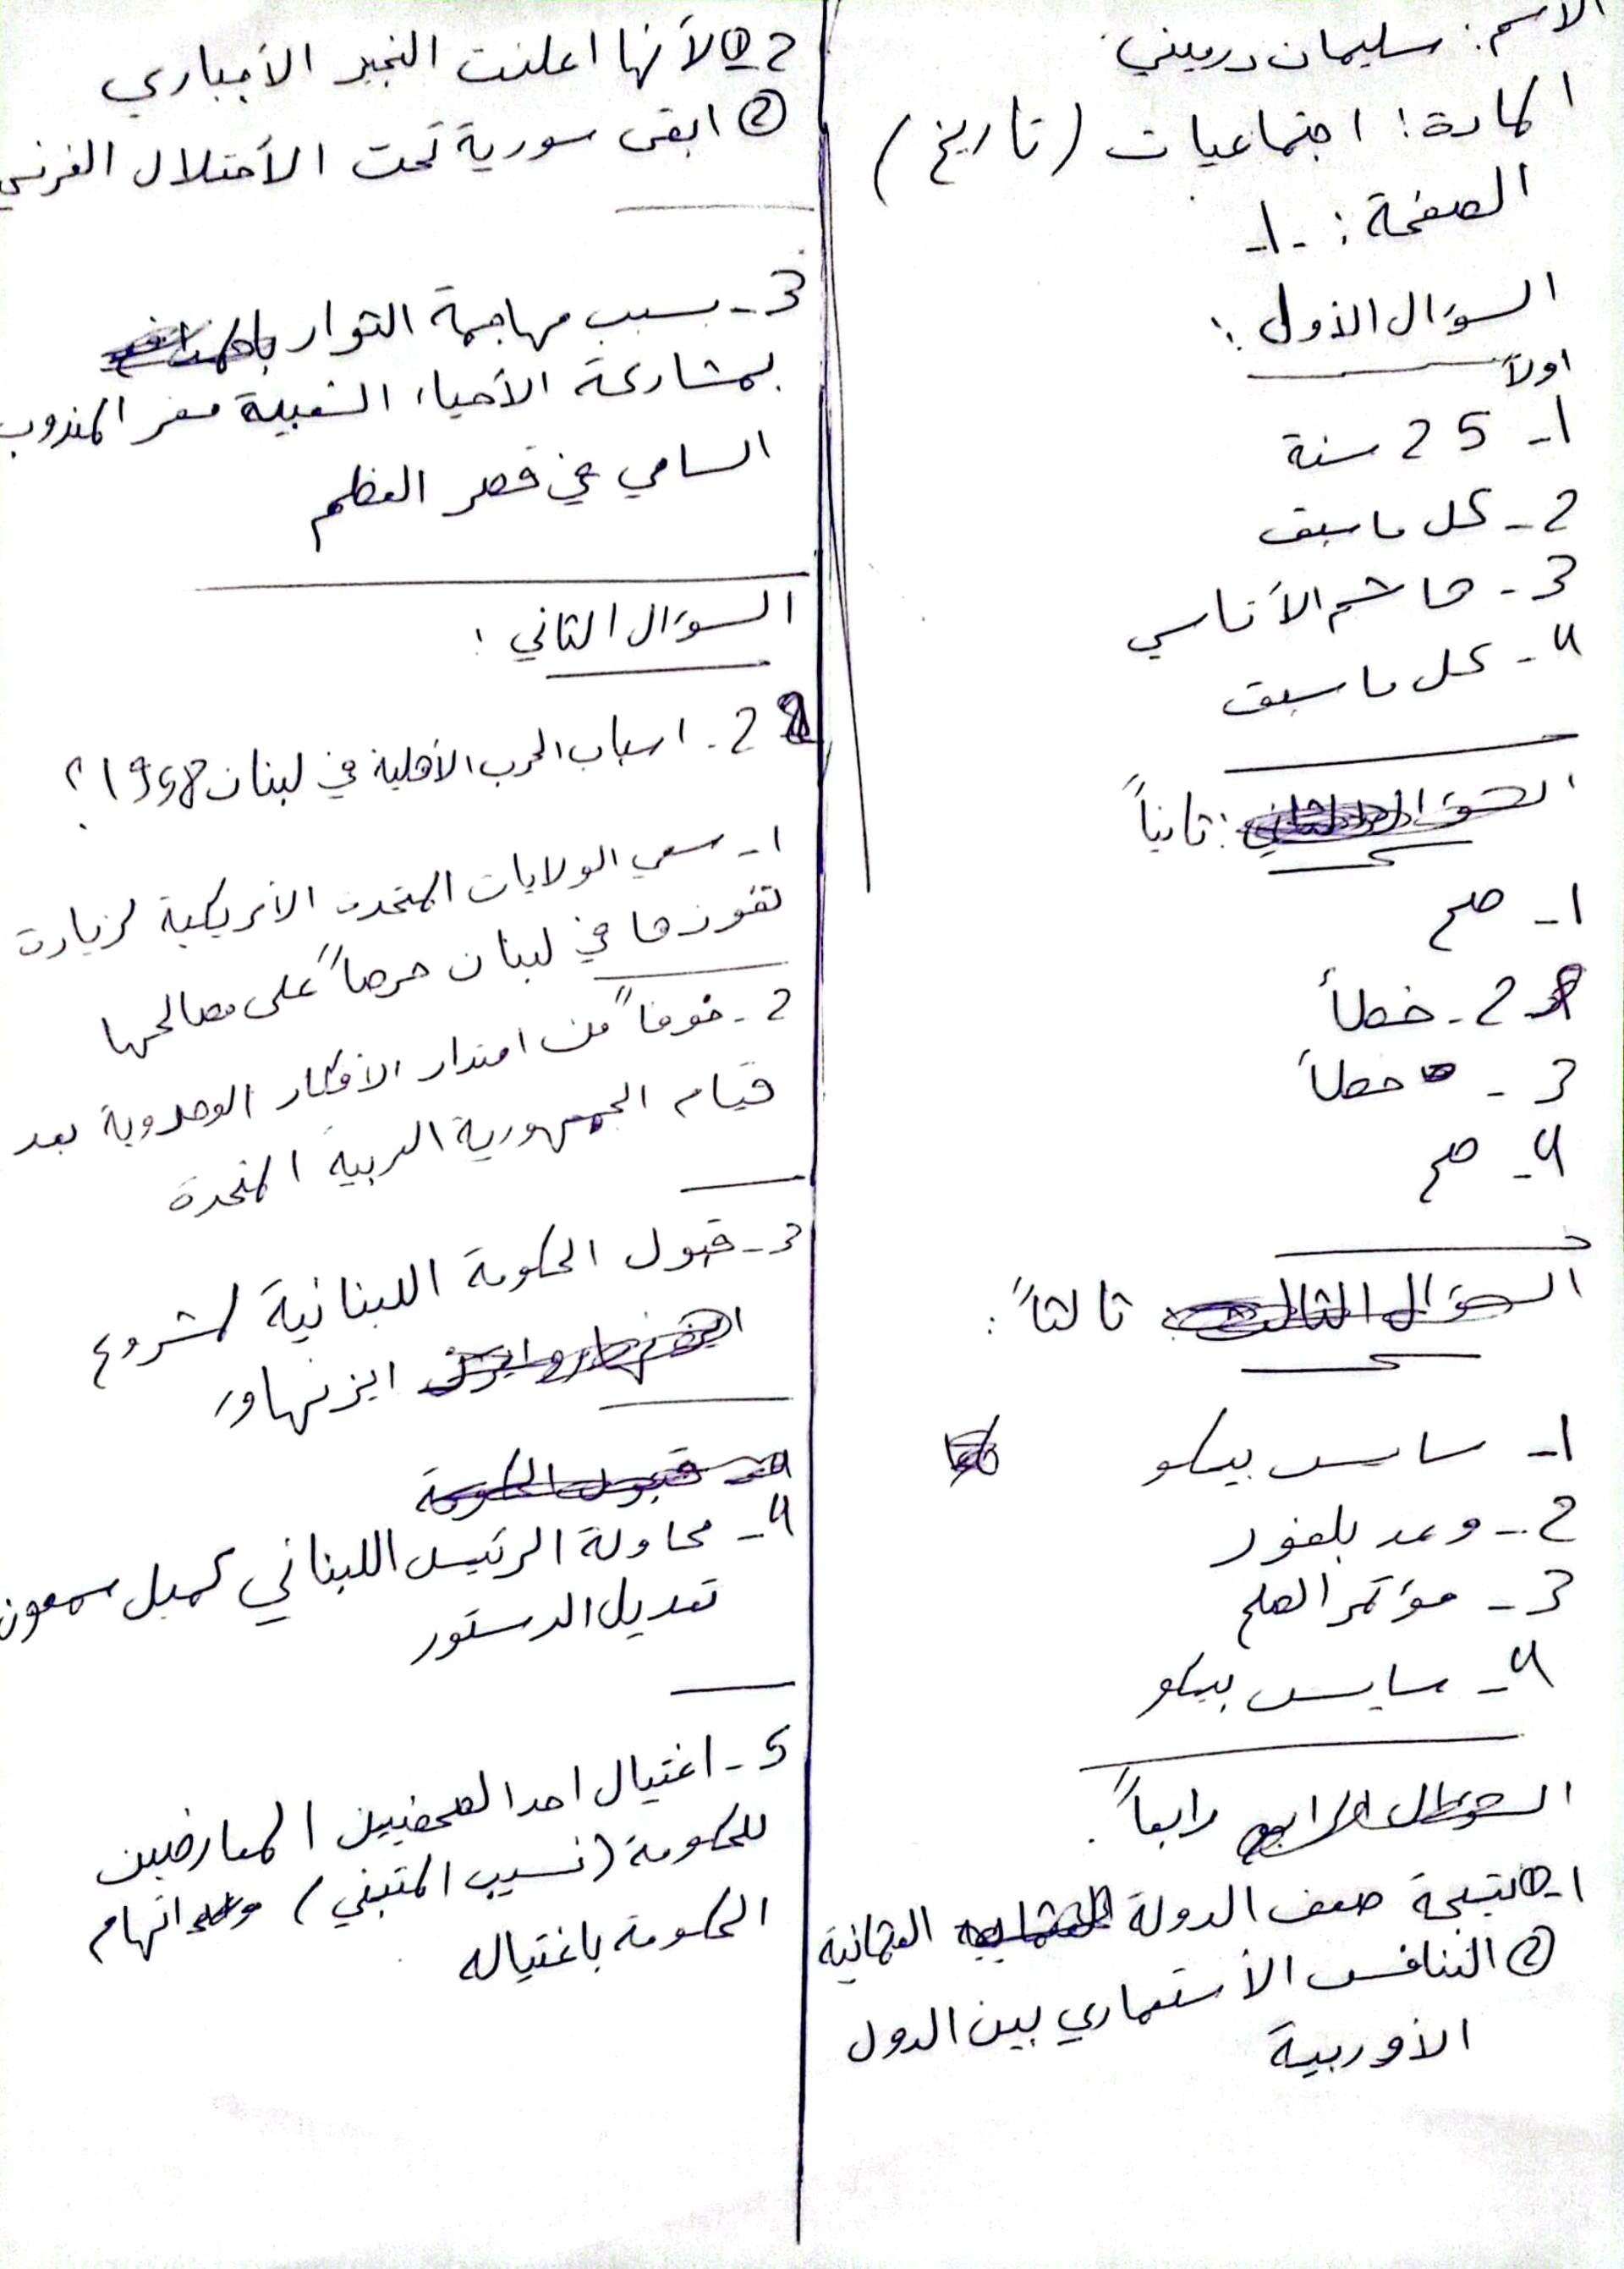 الاسم: سليمان درويني
المادة: اجتماعيات (تاريخ)
الصفحة: -1-
السؤال الأول:
اولاً
1- 25 سنة
2- كل ما سبق
3- هاشم الأتاسي
4- كل ما سبق
ثانياً:
1- صح
2- خطأ
3- خطأ
4- صح
ثالثاً:
1- سايس بيكو
2- وعد بلفور
3- مؤتمر الصلح
4- سايس بيكو
رابعاً:
1- ① نتيجة ضعف الدولة العثمانية
② التنافس الأستعماري بين الدول
الأوربية
2 ① لأنها اعلنت التجنيد الأجباري
② ابقى سورية تحت الأحتلال الفرنسي
3- بسبب مهاجمة الثوار
بمشاركة الأحياء الشعبية مقر المندوب
السامي في قصر العظم
السؤال الثاني:
2- اسباب الحرب الأهلية في لبنان 1958؟
1- سعي الولايات المتحدة الأمريكية لزيادة
نفوذها في لبنان حرصاً على مصالحها
2- خوفاً من امتداد الأفكار الوحدوية بعد
قيام الجمهورية العربية المتحدة
3- قبول الحكومة اللبنانية لمشروع
ايزنهاور
4- محاولة الرئيس اللبناني كميل شمعون
تعديل الدستور
5- اغتيال احد الصحفيين المعارضين
للحكومة (نسيب المتني) واتهام
الحكومة باغتياله